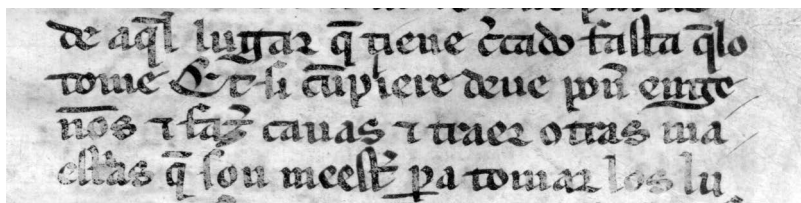 de aq̃l lugar q̃ tiene c̃cado fasta q̃lo
tome Et si cũpliere deue poñ enge
nõs ⁊ faz̃ cauas ⁊ traer otras ma
est̃as q̃ son meest̃ ꝑa tomar los lu